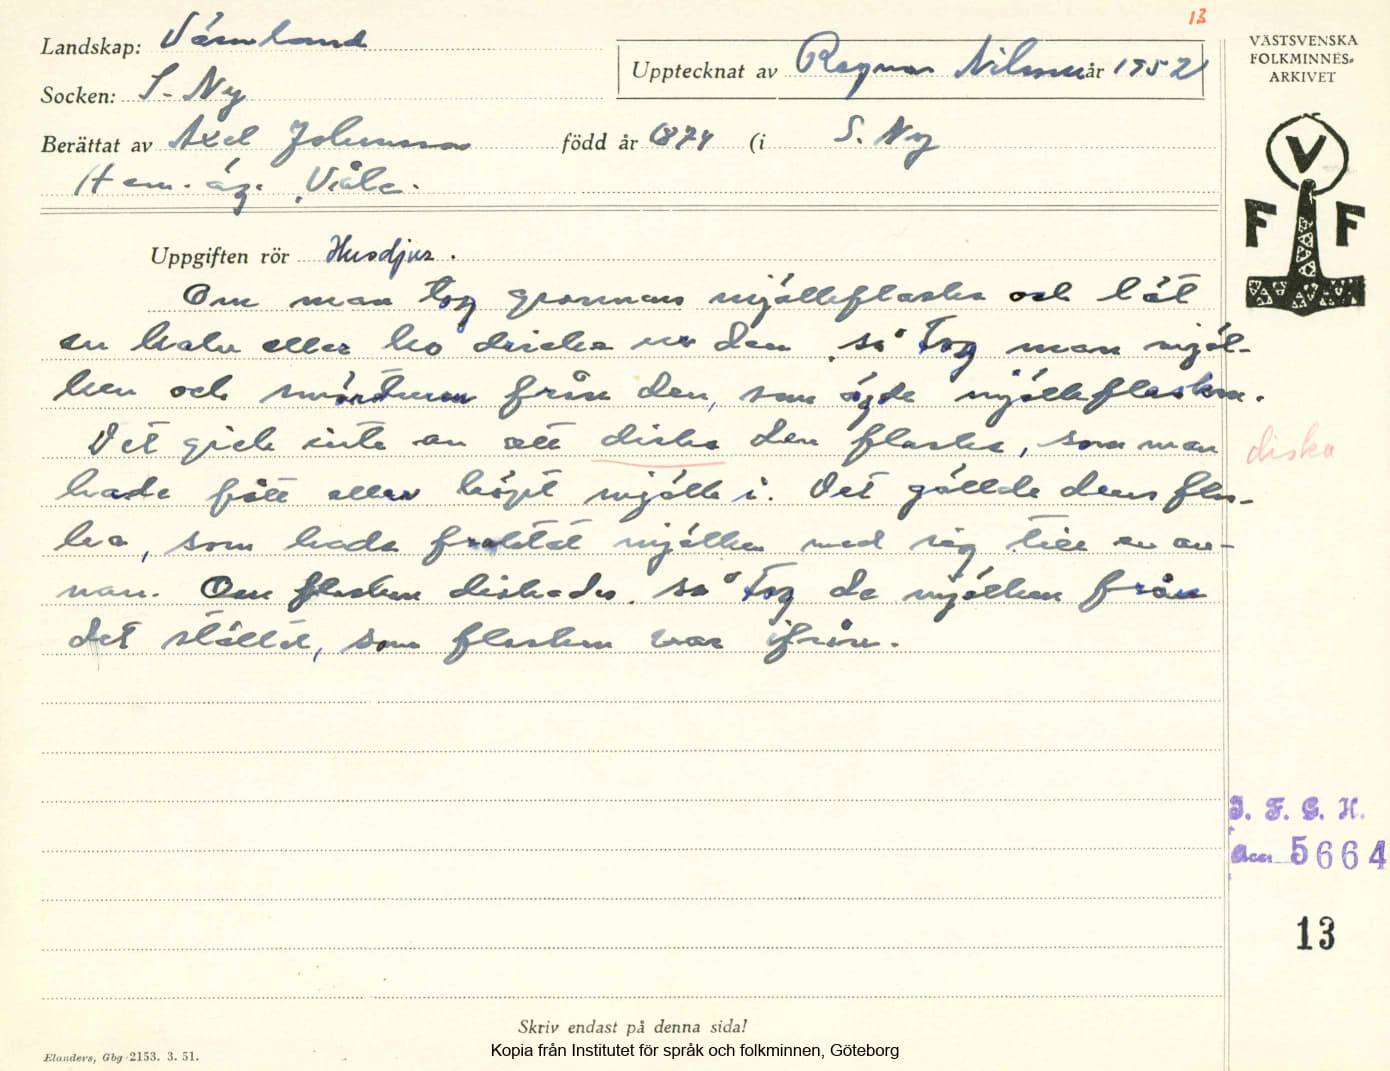 13
Landskap: Värmland
Upptecknat av Ragnar Nilsson år 1952
VÄSTSVENSKA
FOLKMINNES-
ARKIVET
Socken: S. Ny
Berättat av Axel Johansson född år 1874 (i S. Ny
Hem. äg. Viåle.
V
F F
Uppgiften rör Husdjur.
Om man tog grannens mjölkflaska och lät
en kalv eller ko dricka ur den så tog man mjöl-
ken och smörturen från den, som ägde mjölkflaskan.
Det gick inte an att diska den flaska, som man
diska
hade fått eller köpt mjölk i. Det gällde den fla-
ska, som hade fraktat mjölken med sig till en an-
nan. Om flaskan diskades så tog de mjölken från
det stället, som flaskan var ifrån.
I. F. G. H.
Acc. 5664
13
Skriv endast på denna sida!
Elanders, Gbg 2153. 3. 51.
Kopia från Institutet för språk och folkminnen, Göteborg